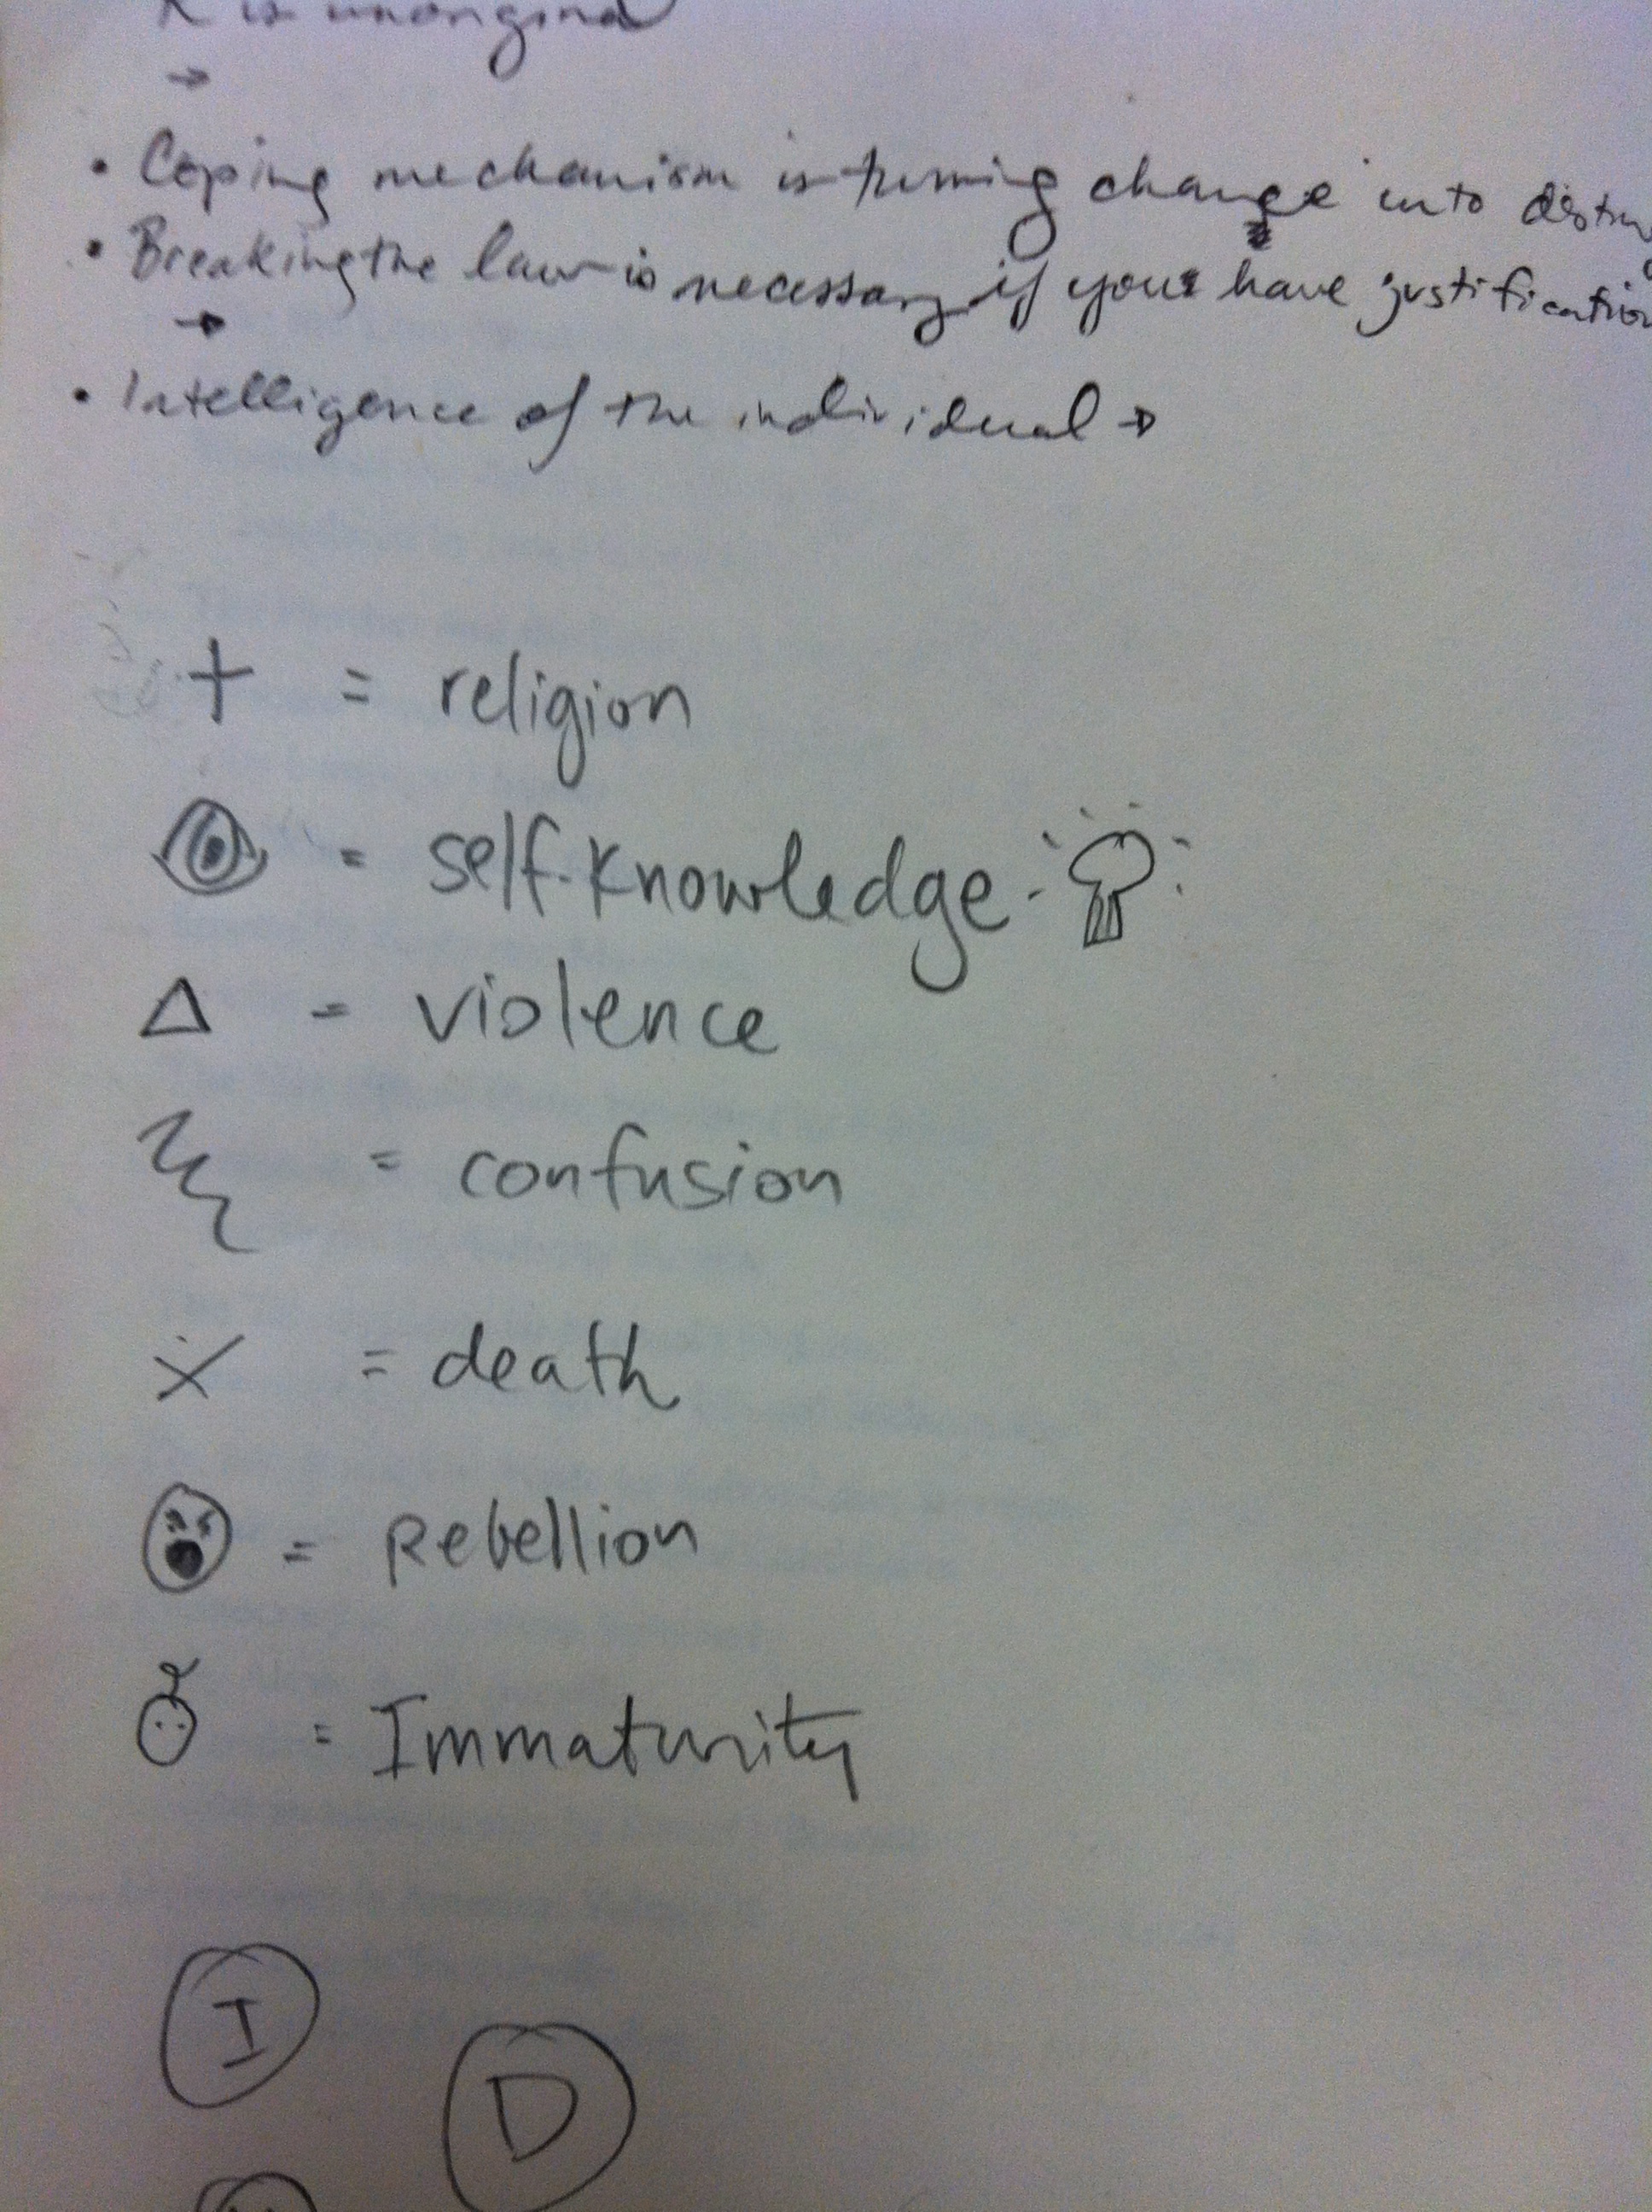 is unorigina
→
• Coping mechanism is turning change into
• Breaking the law is necessary if you have justification
→
• Intelligence of the individual →
+ = religion
= self-knowledge
Δ = violence
= confusion
X = death
= Rebellion
= Immaturity
I
D